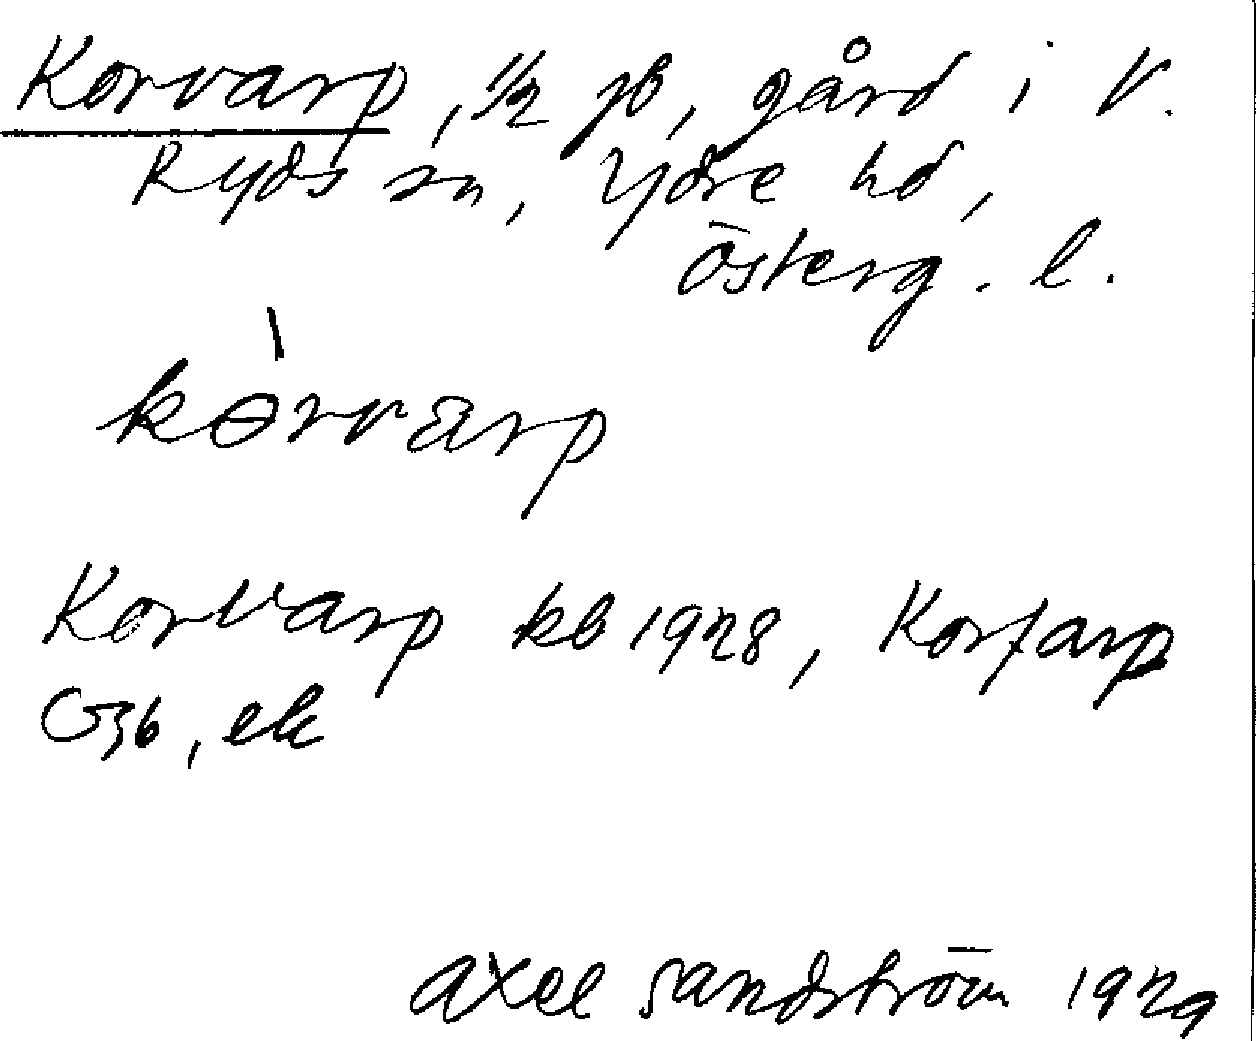 Korvarp, 1/2 jb, gård i V.
Ryds sn, Ydre hd,
Österg. l.
kɵ̀rvarp
Korvarp kb 1928, Korfarp
G36, ek
Axel Sandström 1929